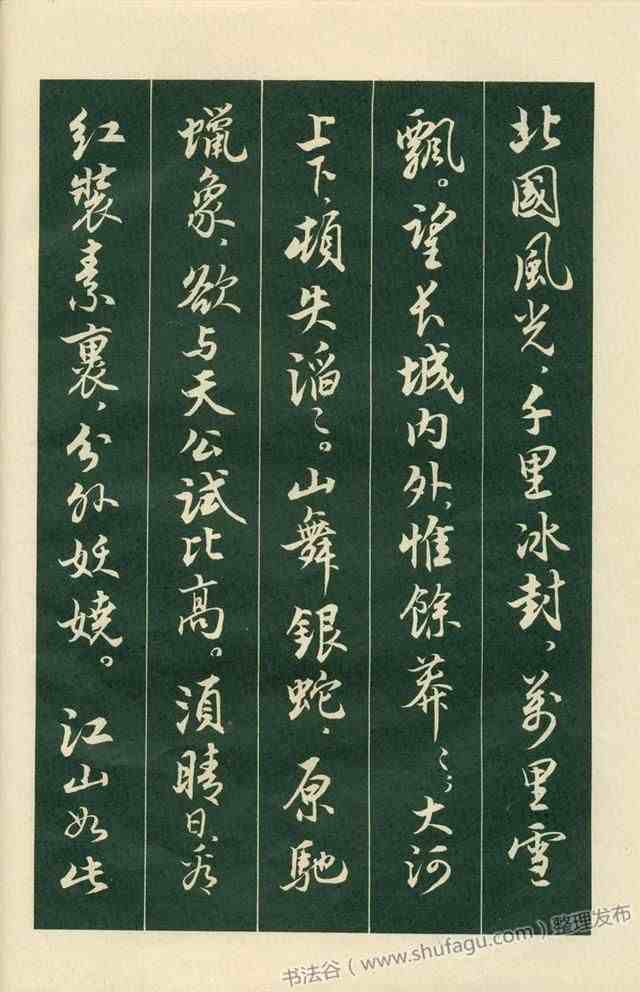 北國風光，千里冰封，萬里雪
飄。望长城内外，惟餘莽〻；大河
上下，頓失滔〻。山舞銀蛇，原馳
蠟象，欲与天公試比高。須晴日，看
红裝素裹，分外妖嬈。江山如此
书法谷（www.shufagu.com）整理发布